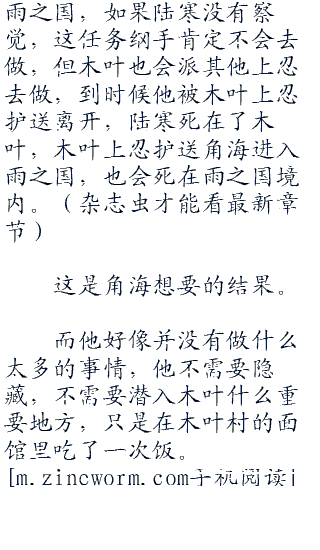 雨之国，如果陆寒没有察
觉，这任务纲手肯定不会去
做，但木叶也会派其他上忍
去做，到时候他被木叶上忍
护送离开，陆寒死在了木
叶，木叶上忍护送角海进入
雨之国，也会死在雨之国境
内。（杂志虫才能看最新章
节）
这是角海想要的结果。
而他好像并没有做什么
太多的事情，他不需要隐
藏，不需要潜入木叶什么重
要地方，只是在木叶村的面
馆里吃了一次饭。
[m.zincworm.com手机阅读